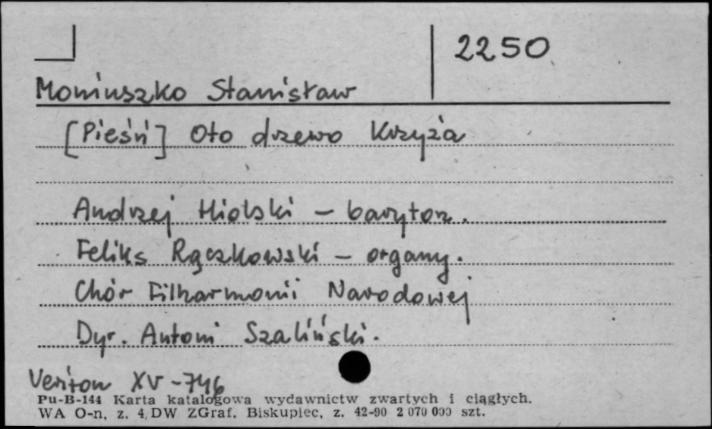 2250
Moniuszko Stanisław
[Pieśń] Oto drzewo Krzyża
Andrzej Hiolski – baryton.
Feliks Rączkowski – organy.
Chór Filharmonii Narodowej
Dyr. Antoni Szaliński.
Veriton XV-746
Pu-B-144 Karta katalogowa wydawnictw zwartych i ciągłych.
WA O-n. z. 4. DW ZGraf. Biskupiec, z. 42-90 2 070 000 szt.